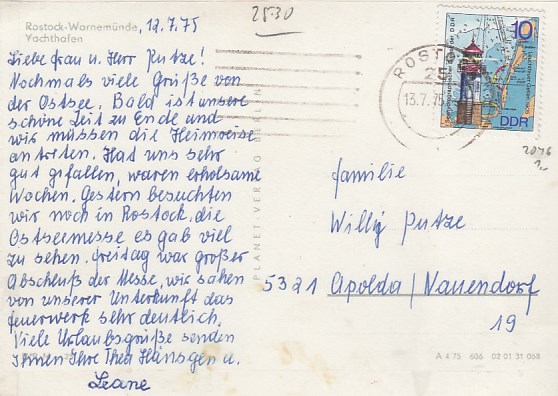 Rostock-Warnemünde, 12.7.75
Yachthafen
2530
Liebe Frau u. Herr Putze!
Nochmals viele Grüße von
der Ostsee. Bald ist unsere
schöne Zeit zu Ende und
wir müssen die Heimreise
antreten. Hat uns sehr
gut gefallen, waren erholsame
Wochen. Gestern besuchten
wir noch in Rostock, die
Ostseemesse es gab viel
zu sehen. Freitag war großer
Abschluß der Messe, wir sahen
von unserer Unterkunft das
Feuerwerk sehr deutlich.
Viele Urlaubsgrüße senden
Ihnen Ihre Thea Hänsgen u.
PLANET VERLAG BERLIN
ROSTO
25
13.7.75
10
DDR
Familie
Willy Putze
5321 Apolda/Nauendorf
19
A 4 75 606 02 01 31 068